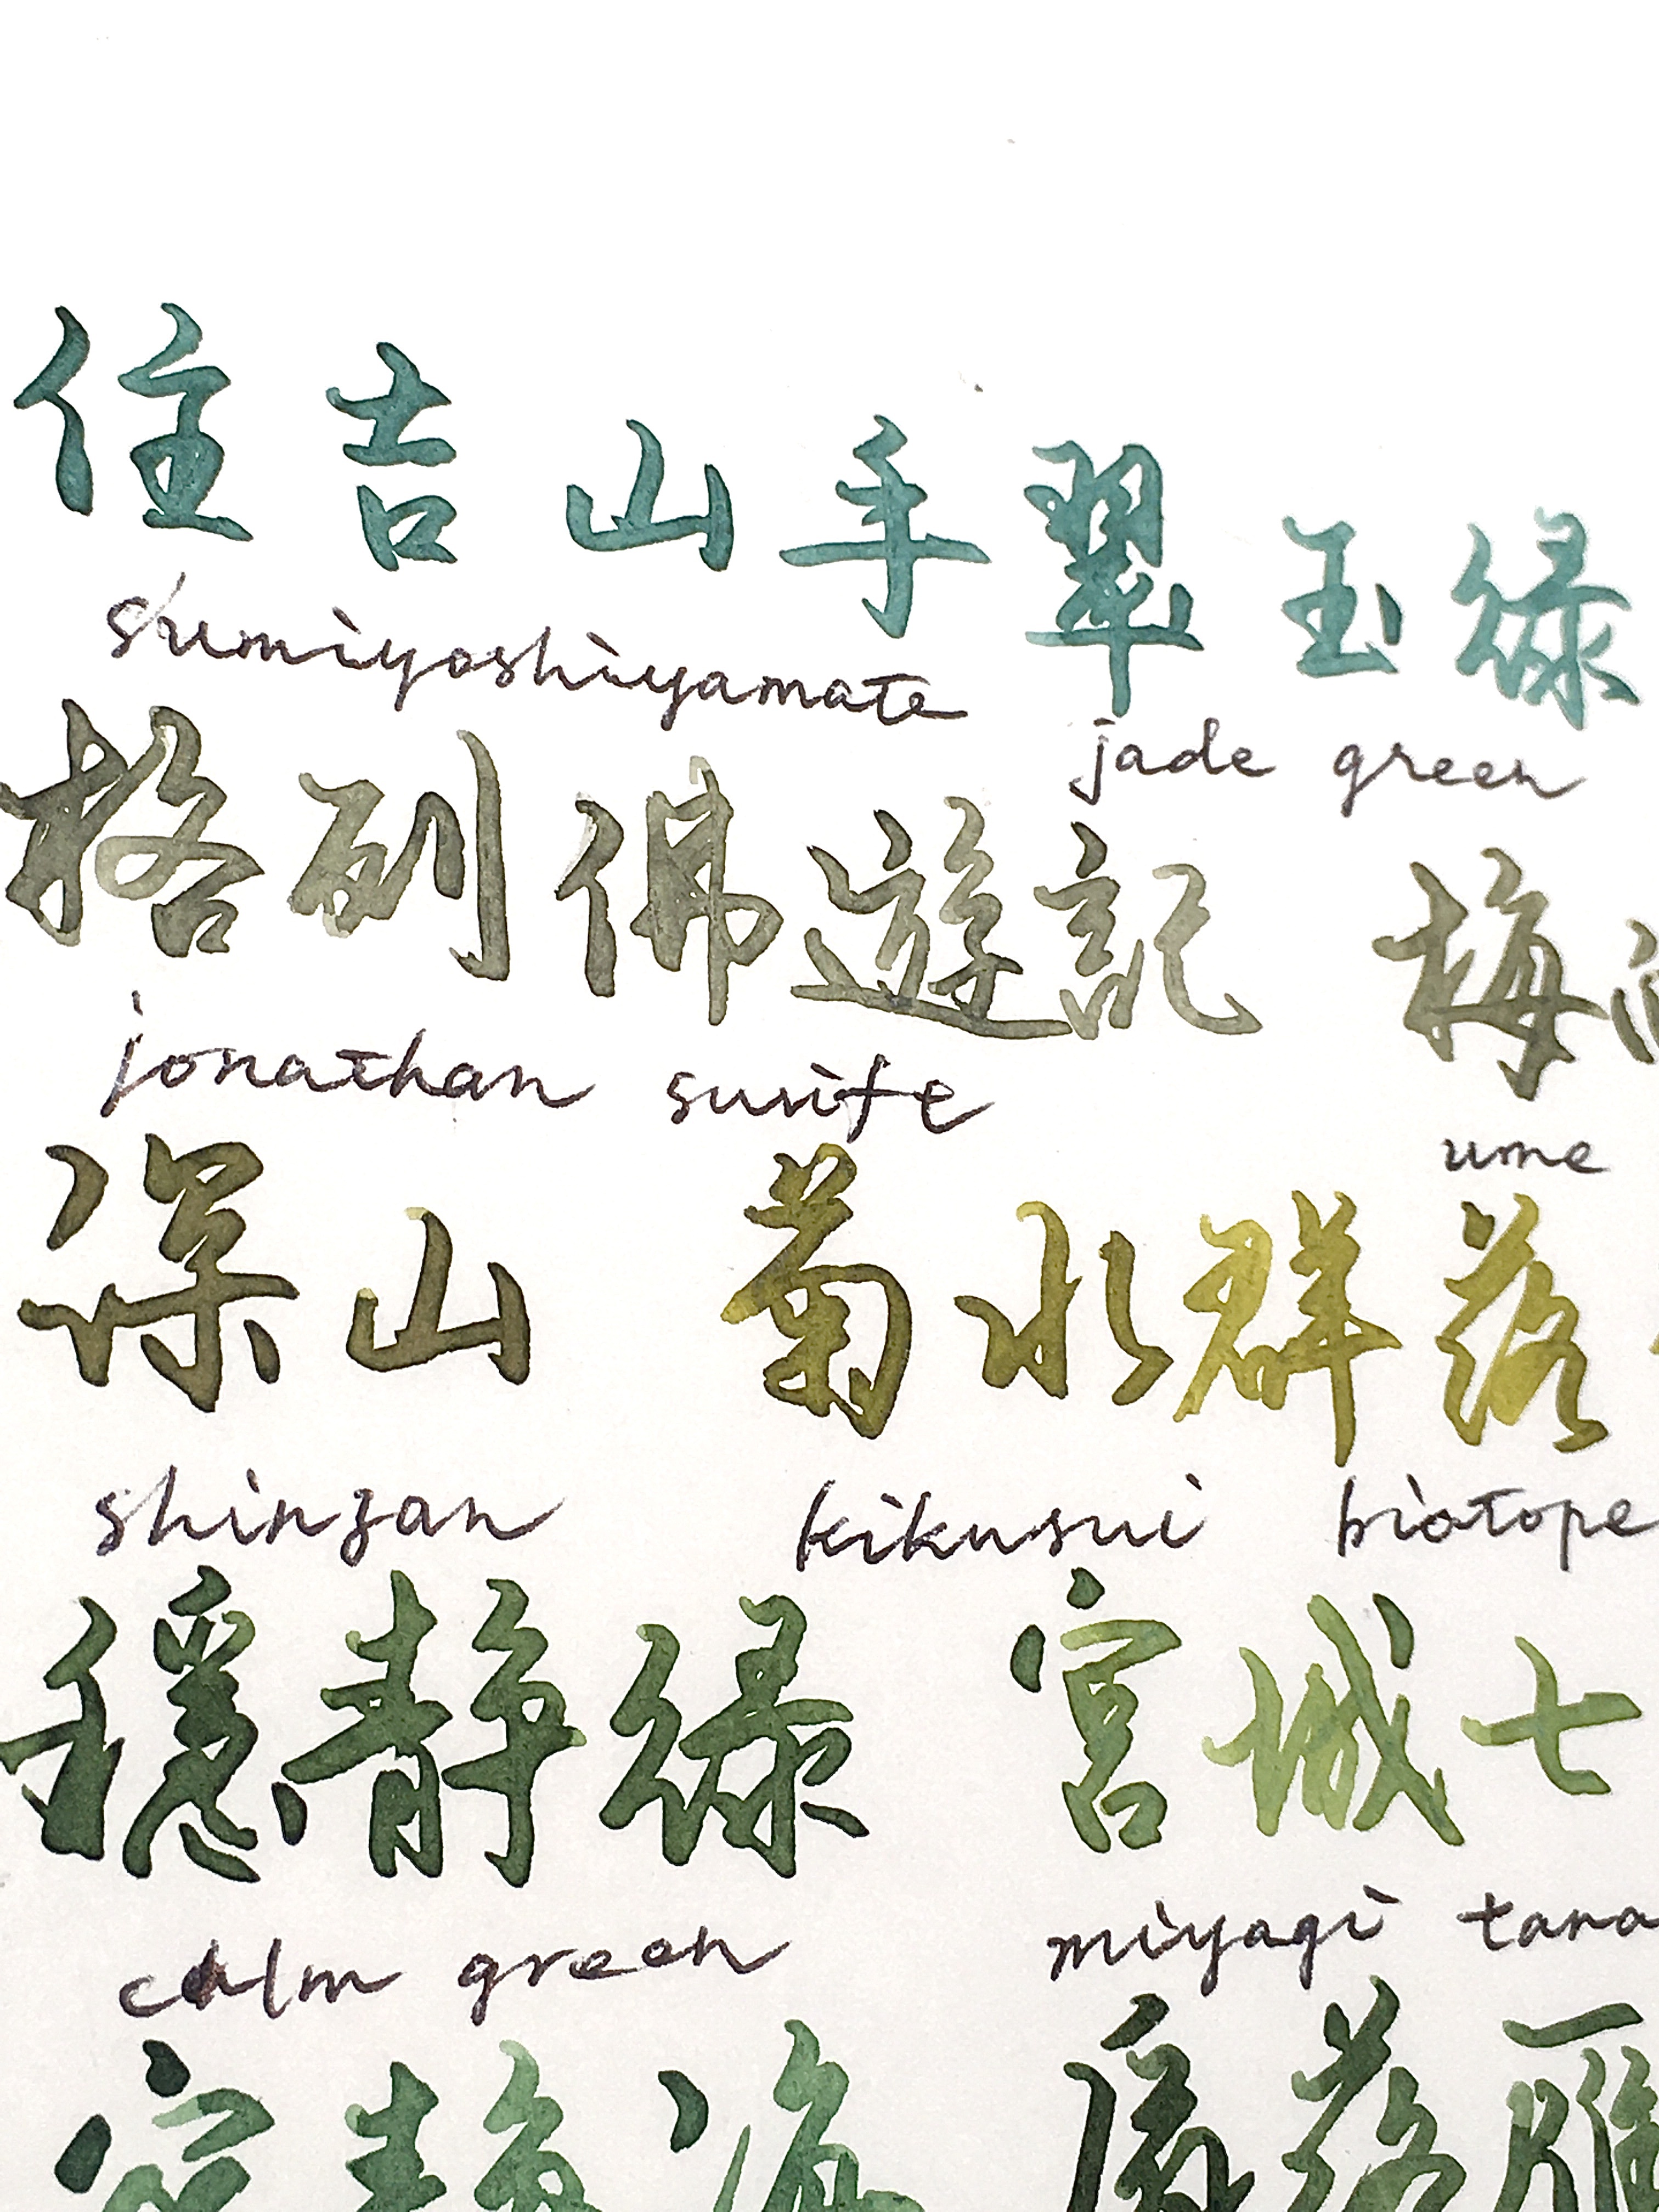 住吉山手 翠玉緑
sumiyoshiyamate jade green
格列佛遊記 梅
jonathan swift ume
深山 菊水群落
shinzan kikusui biotope
穏静緑 宮城七
calm green miyagi tana
静海 落雁